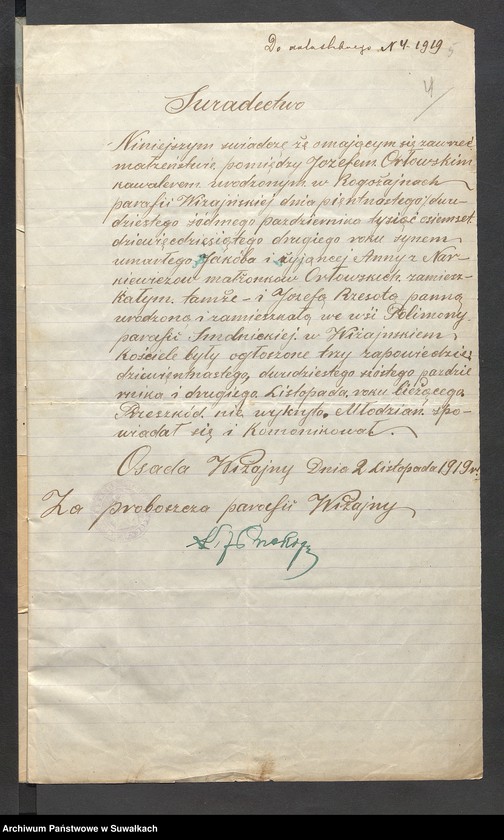 Do małżeńskiego N 4 1919
4
Świadectwo
Niniejszym świadczę że o mającym się zawrzeć
małżeństwie pomiędzy Jozefem Orłowskim
kawalerem urodzonym w Rogożajnach
parafii Wiżajńskiej dnia piętnastego/dwu-
dziestego siódmego pazdziernika tysiąc osiemset
dziewięcdziesiątego drugiego roku synem
umarłego Jakóba i żyjącej Anny z Nar-
kiewiczów małżonków Orłowskich, zamiesz-
kałym tamże - i Jozefą Rzesotą panną
urodzoną i zamieszkałą we wsi Polimony
parafii Smolnickiej w Wiżajnskiem
Kościele były ogłoszone trzy zapowiedzie:
dziewiętnastego, dwudziestego szóstego paździer
nika i drugiego Listopada roku bieżącego
Preszkód nie wykryto. Młodzian spo-
wiadał się i komonikował.
Osada Wiżajny Dnia 2 Listopada 1919 r.
Za proboszcza parafii Wiżajny
Archiwum Państwowe w Suwałkach